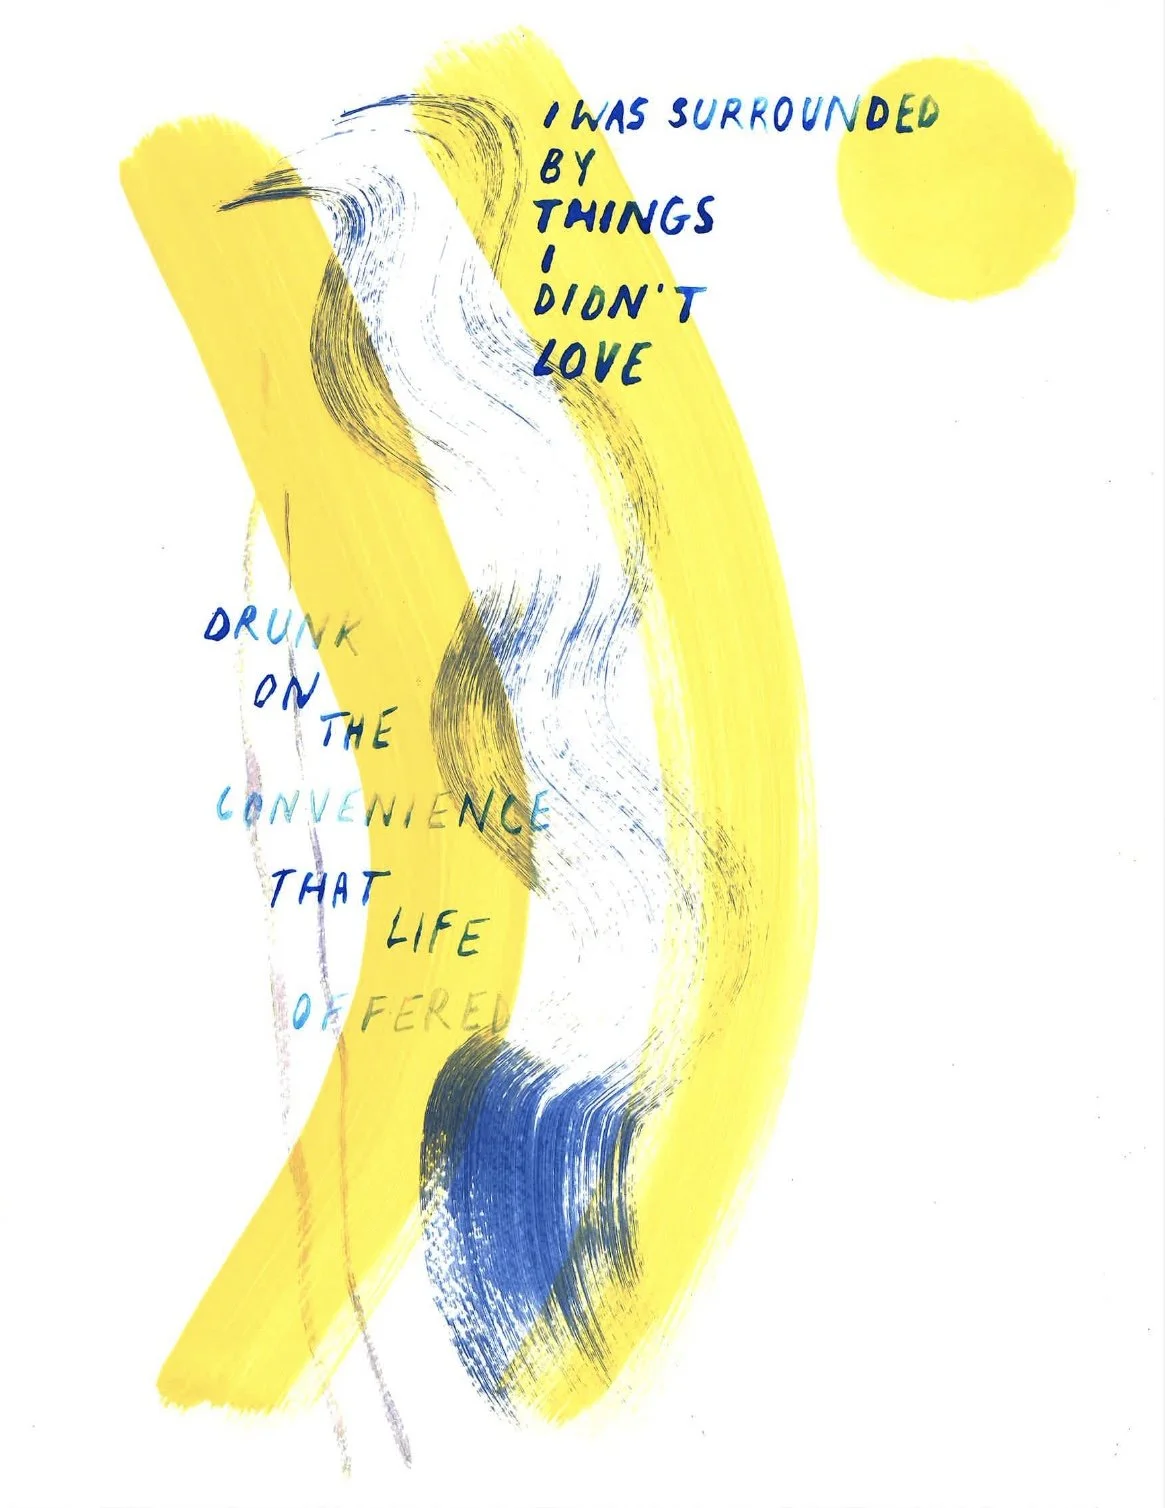 I WAS SURROUNDED
BY
THINGS
I
DIDN'T
LOVE
DRUNK
ON
THE
CONVENIENCE
THAT
LIFE
OFFERED